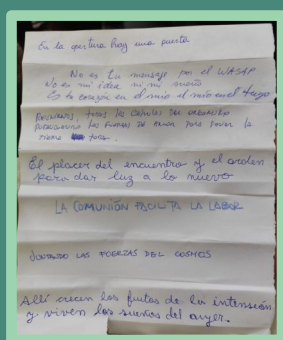 En la apertura hay una puerta
No es tu mensaje por el WASAP
No es mi idea ni mi sueño
Es tu corazón en el mio el mio en el tuyo
todas las células del organismo
las fuerzas de para poner la
misma
El placer del encuentro y el orden
para dar luz a lo nuevo
LA COMUNIÓN FACILITA LA LABOR
JUGANDO LAS FUERZAS DEL COSMOS
Allí crecen los frutos de la intensión
y viven los sueños del ayer.